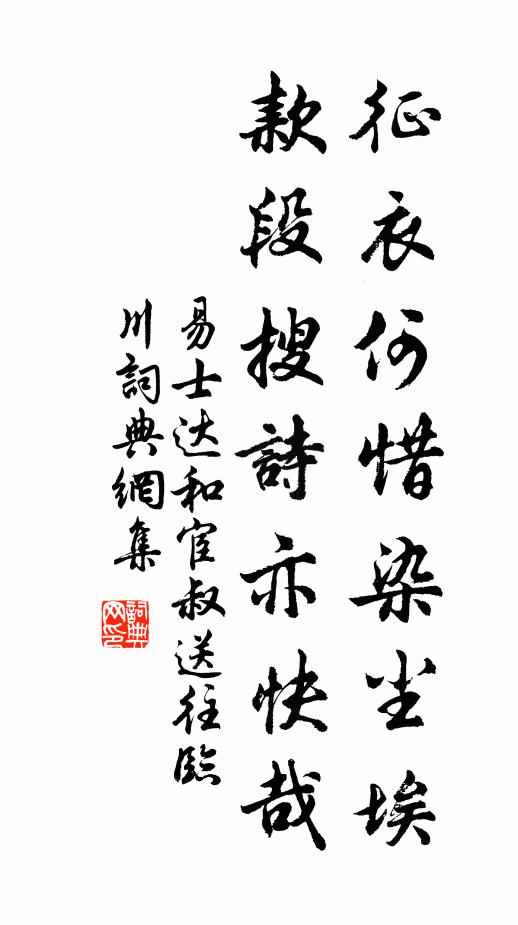 征衣何惜染尘埃
款段搜詩亦快哉
易士达和宦叔送往臨
川詞典網集
詞典
网印